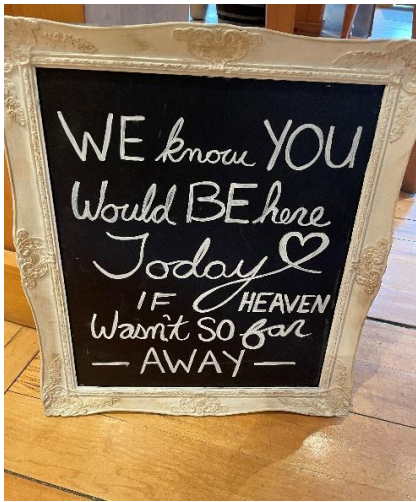 WE know YOU
Would BE here
Today
IF HEAVEN
Wasn't so far
— AWAY —